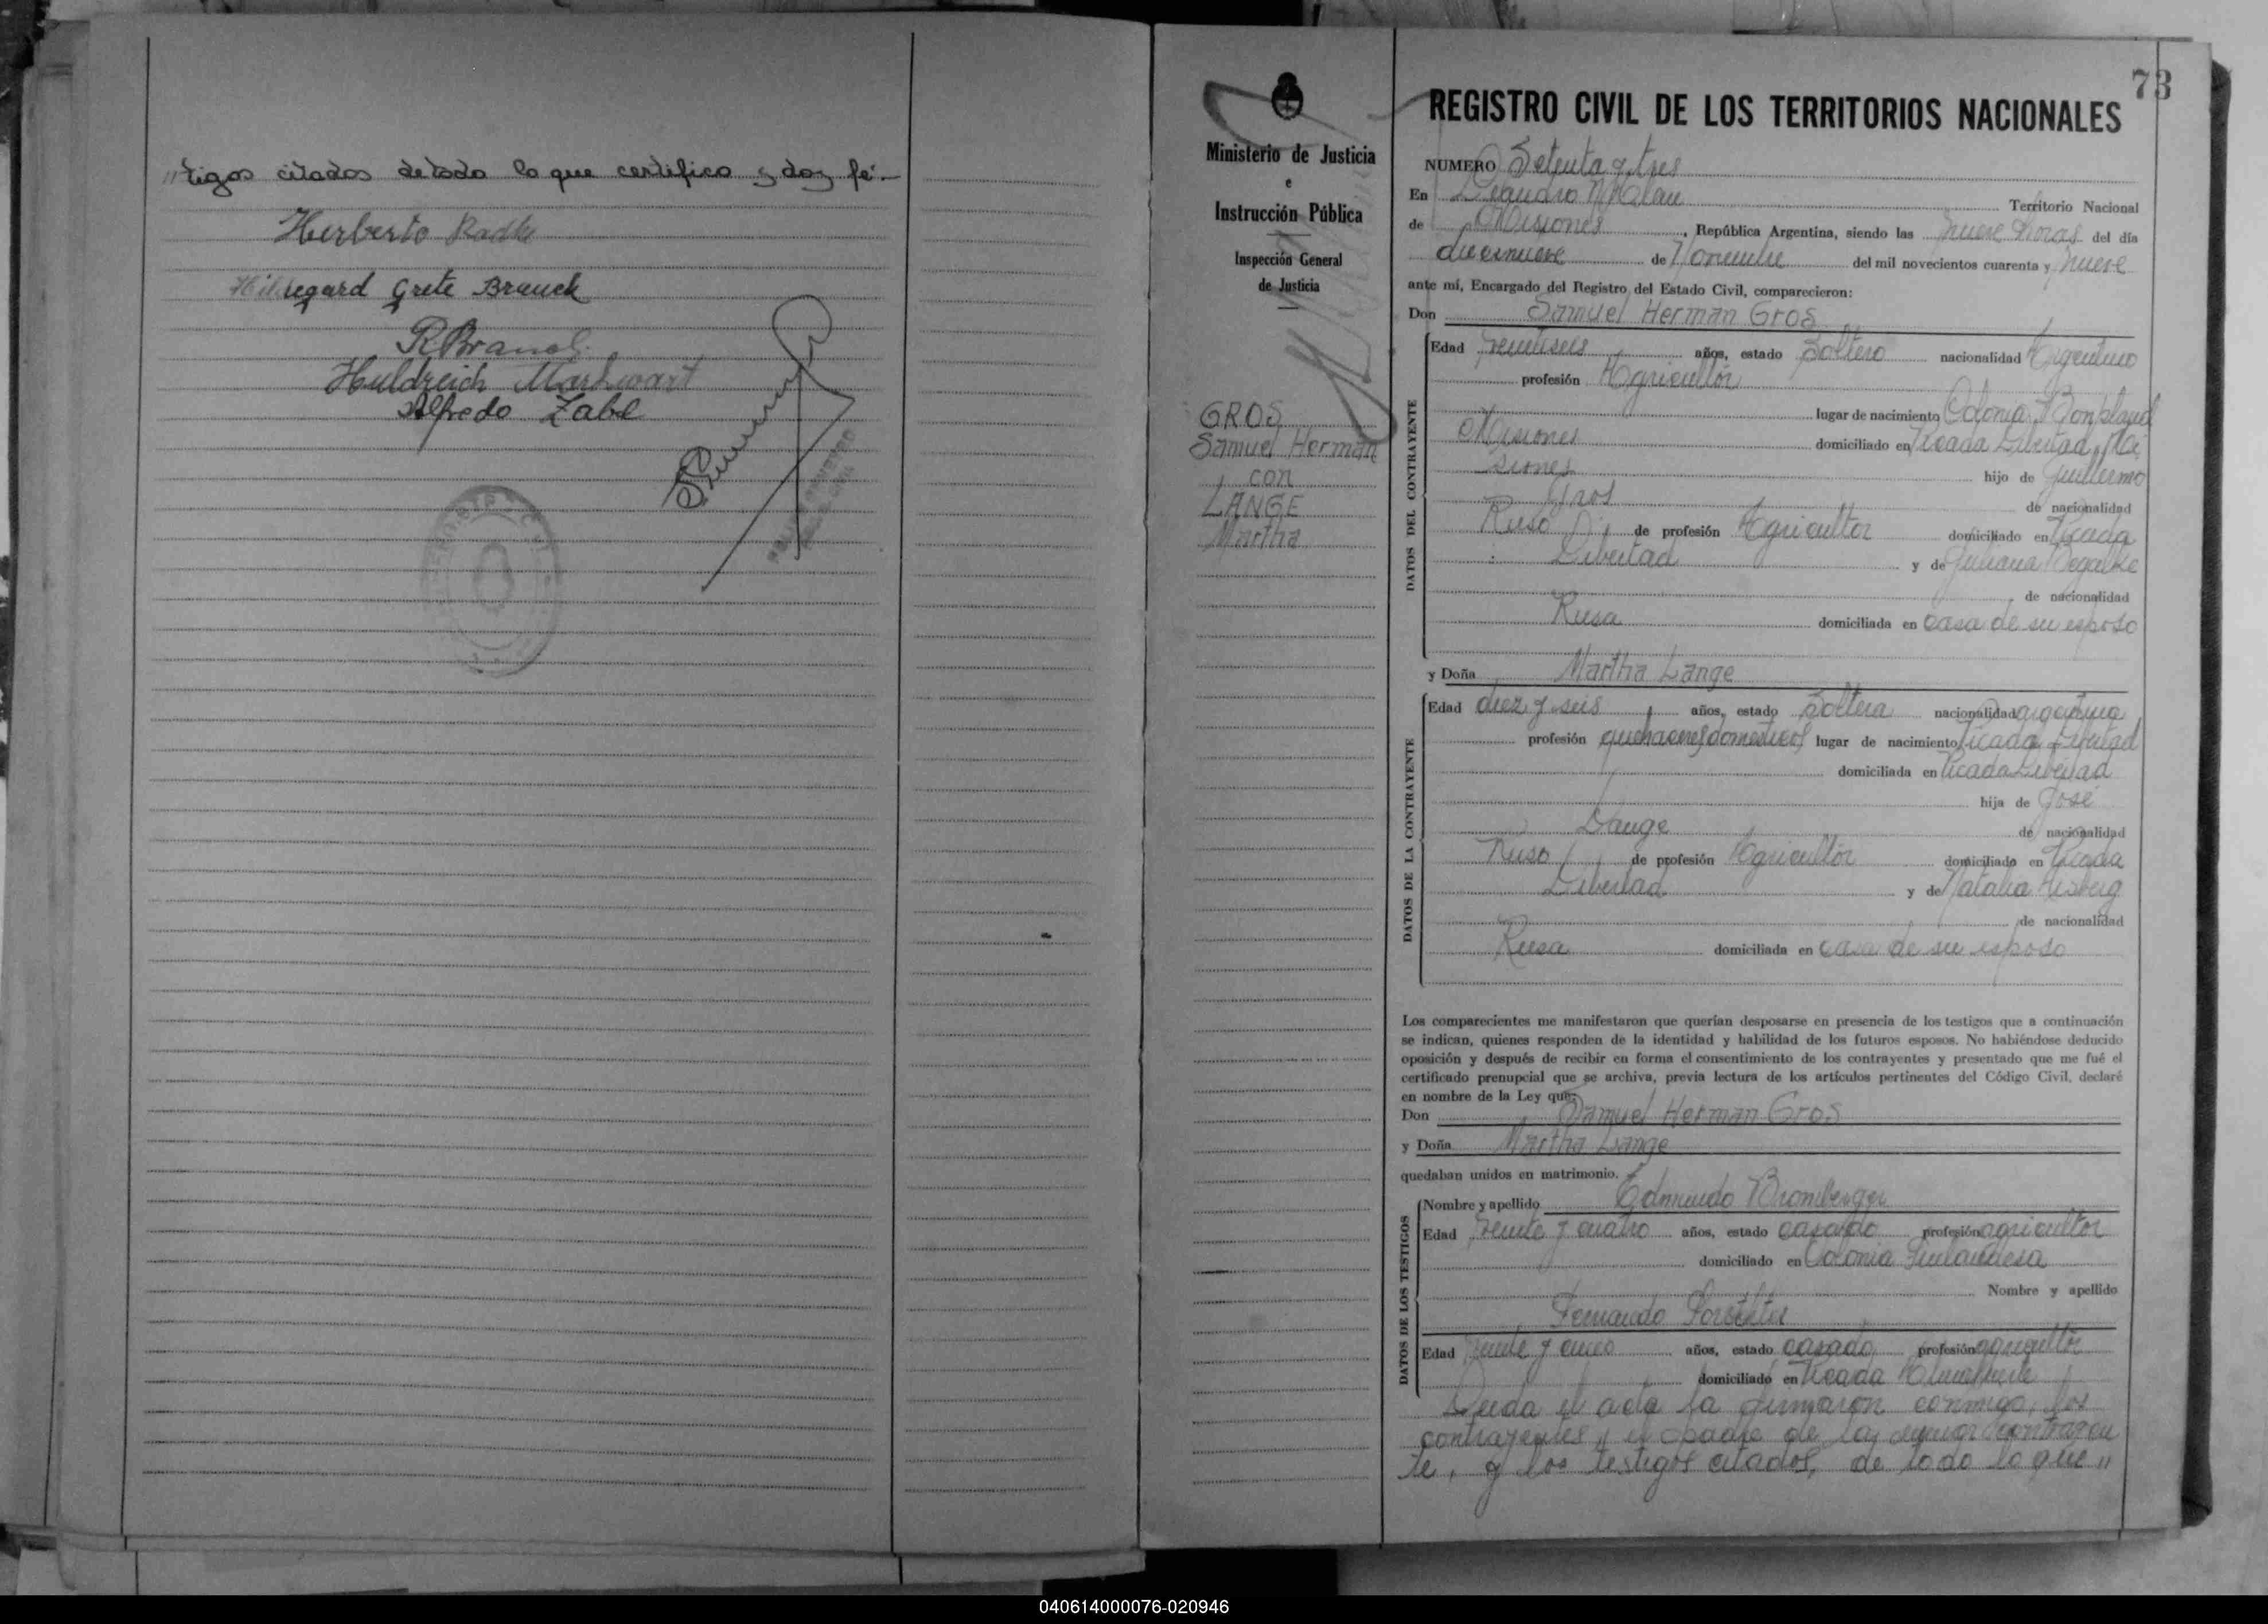 "tigos citados de todo lo que certifico y doy fé.-
Herberto Radke
Hildegard Grete Brauck
Huldreich Markwart
Alfredo Zabel
73
Ministerio de Justicia
e
Instrucción Pública
Inspección General
de Justicia
GROS
Samuel Herman
con
LANGE
Martha
REGISTRO CIVIL DE LOS TERRITORIOS NACIONALES
NUMERO Setenta y tres
En Leandro N. Alem Territorio Nacional
de Misiones, República Argentina, siendo las nueve horas del día
diecinueve de Noviembre del mil novecientos cuarenta y nueve
ante mí, Encargado del Registro del Estado Civil, comparecieron:
Don Samuel Herman Gros
DATOS DEL CONTRAYENTE
Edad veintiseis años, estado Soltero nacionalidad Argentino
profesión Agricultor
lugar de nacimiento Colonia Bonpland
Misiones domiciliado en Picada Libertad, Mi
siones hijo de Guillermo
Gros de nacionalidad
Ruso de profesión Agricultor domiciliado en Picada
Libertad y de Juliana
de nacionalidad
Rusa domiciliada en casa de su esposo
y Doña Martha Lange
DATOS DE LA CONTRAYENTE
Edad diez y seis años, estado Soltera nacionalidad argentina
profesión quehaceres domesticos lugar de nacimiento Picada Libertad
domiciliada en Picada Libertad
hija de José
Lange de nacionalidad
Ruso de profesión Agricultor domiciliado en Picada
Libertad y de Natalia
de nacionalidad
Rusa domiciliada en casa de su esposo
Los comparecientes me manifestaron que querían desposarse en presencia de los testigos que a continuación
se indican, quienes responden de la identidad y habilidad de los futuros esposos. No habiéndose deducido
oposición y después de recibir en forma el consentimiento de los contrayentes y presentado que me fué el
certificado prenupcial que se archiva, previa lectura de los artículos pertinentes del Código Civil, declaré
en nombre de la Ley que:
Don Samuel Herman Gros
y Doña Martha Lange
quedaban unidos en matrimonio.
DATOS DE LOS TESTIGOS
Nombre y apellido Edmundo Bromberger
Edad veinte y cuatro años, estado casado profesión agricultor
domiciliado en Colonia Finlandesa
Nombre y apellido
Fernando
Edad veinte y cinco años, estado casado profesión agricultor
domiciliado en Picada
Leida el acta la firmaron conmigo, los
contrayentes, el padre de la menor contrayen
te, y los testigos citados, de todo lo que "
040614000076-020946